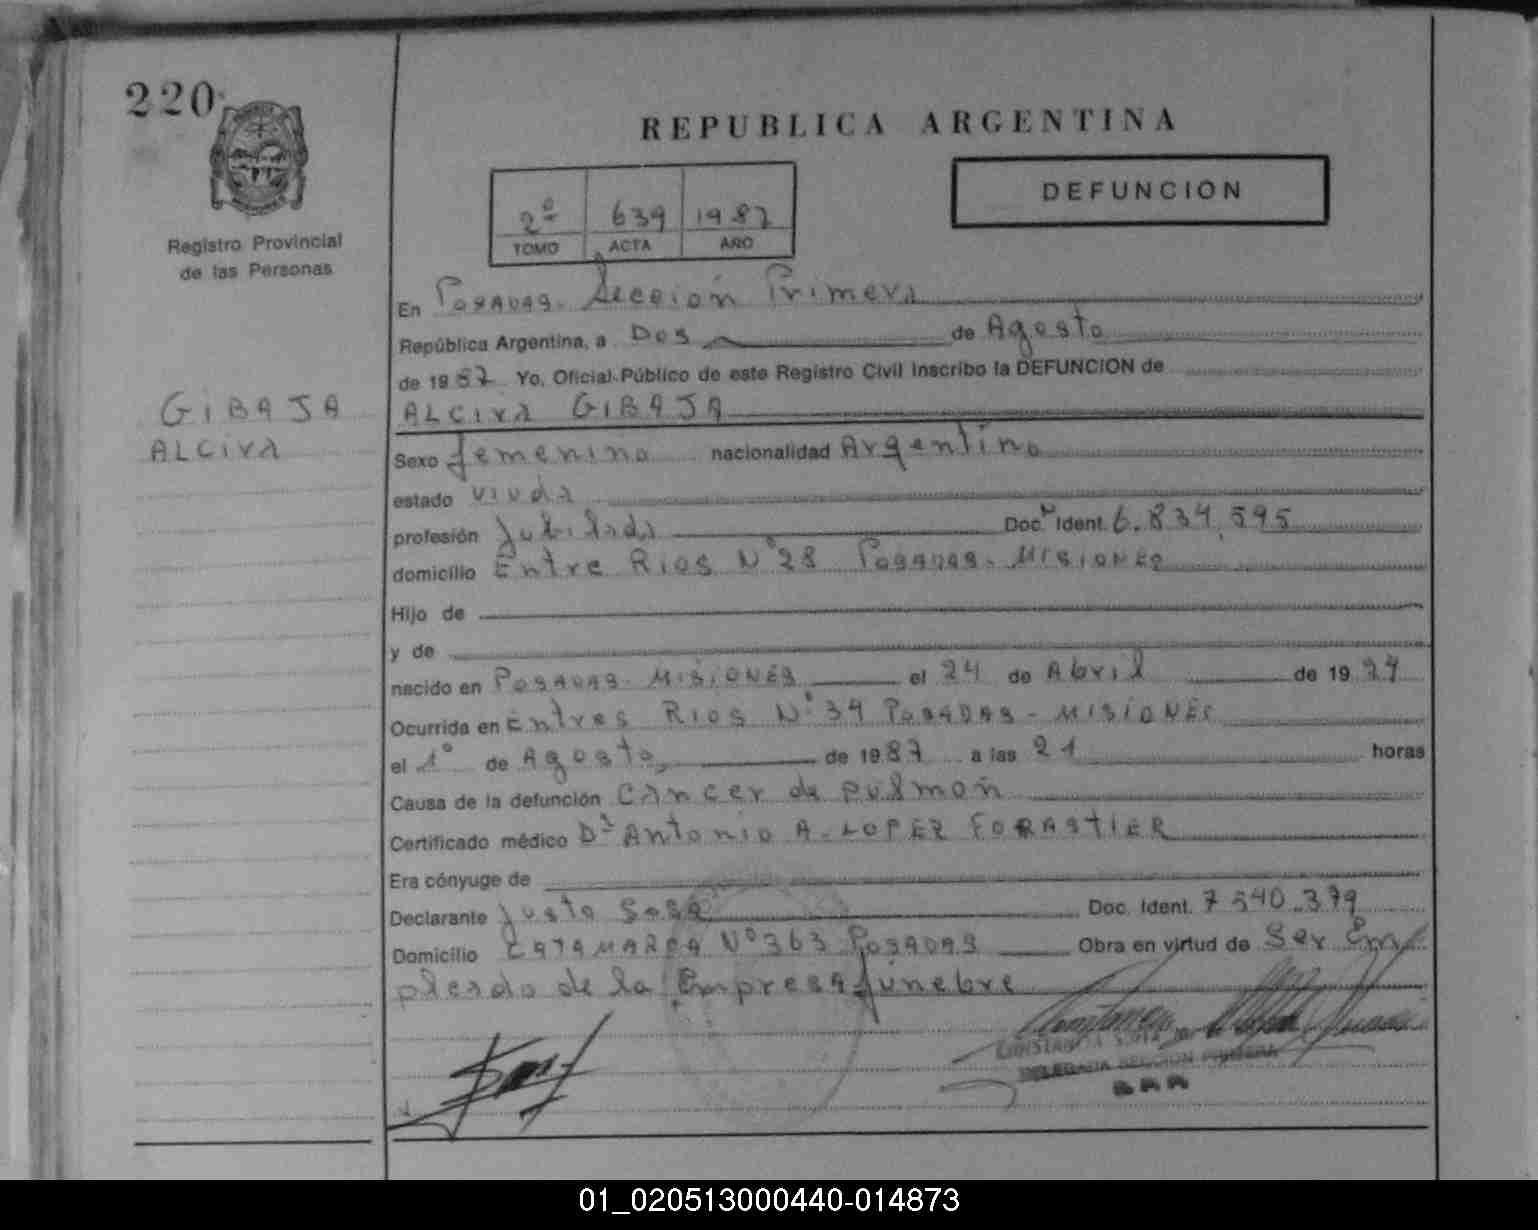 220
REPUBLICA ARGENTINA
DEFUNCION
2º 639 1987
TOMO ACTA AÑO
Registro Provincial
de las Personas
En Posadas. Sección Primera
República Argentina, a Dos de Agosto
de 1987 Yo, Oficial Público de este Registro Civil Inscribo la DEFUNCION de
GIBAJA
ALCIRA
ALCIRA GIBAJA
Sexo femenino nacionalidad Argentino
estado viuda
profesión Jubilada Doc. Ident. 6.834.595
domicilio Entre Rios Nº 28 Posadas - Misiones
Hijo de
y de
nacido en Posadas - Misiones el 24 de Abril de 19
Ocurrida en Entres Rios Nº 34 Posadas - Misiones
el 1º de Agosto de 1987 a las 21 horas
Causa de la defunción Cancer de pulmon
Certificado médico Dr Antonio A. LOPEZ FORASTIER
Era cónyuge de
Declarante Justo Sosa Doc. Ident. 7.540.379
Domicilio CATAMARCA Nº 363 Posadas Obra en virtud de Ser Em
pleado de la Empresa fúnebre
DELEGADA SECCION PRIMERA
01_020513000440-014873